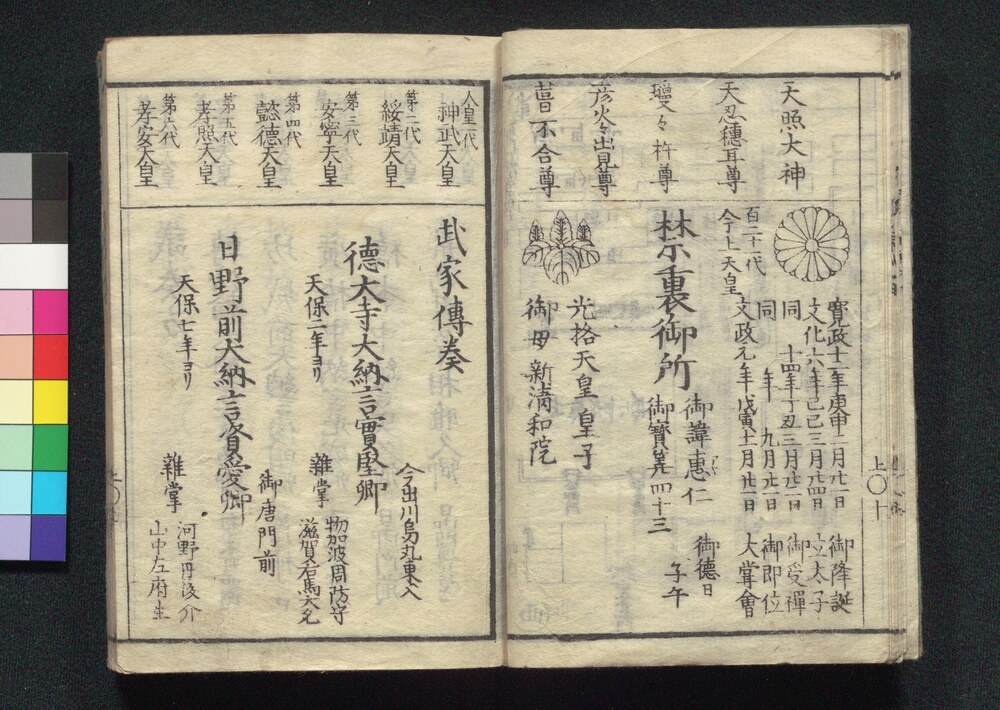 天照大神
天忍穗耳尊
瓊々杵尊
彦火々出見尊
葺不合尊
百二十代
今上天皇
寛政十二年庚申二月廿一日 御降誕
文化六年己巳三月廿四日 立太子
同 十四年丁丑三月廿一日 御受禪
同 年 九月廿一日 御即位
文政元年戊寅十一月廿一日 大甞會
禁裏御所
御諱惠仁
御寶算四十三
御德日
子午
光格天皇皇子
御母 新清和院
上〇十
人皇一代
神武天皇
第二代
綏靖天皇
第三代
安寧天皇
第四代
懿德天皇
第五代
孝照天皇
第六代
孝安天皇
武家傳奏
今出川烏丸東入
德大寺大納言實堅卿
天保二年ヨリ
雜掌
物加波周防守
滋賀右馬大允
御唐門前
日野前大納言資愛卿
天保七年ヨリ
雜掌
河野丹後介
山中左府生